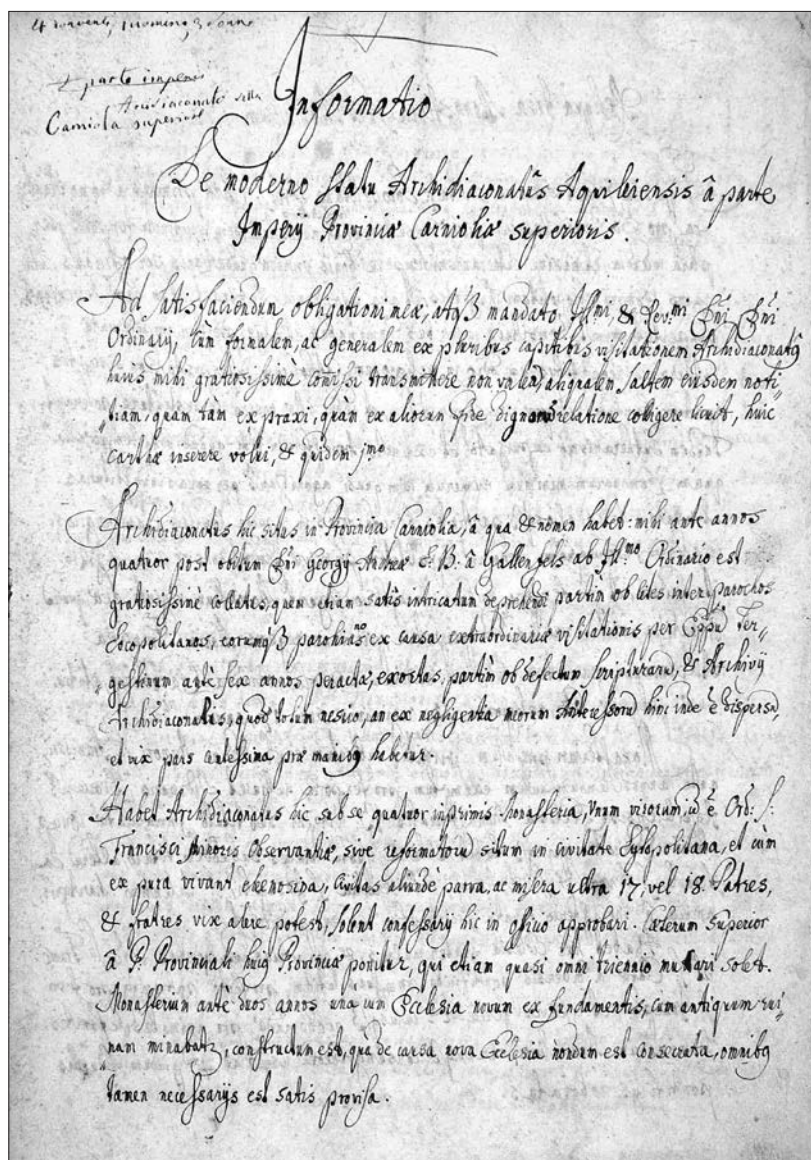 4 conventi, 1 uomini, 3 donne
a parte imperii
Arcidiaconato della
Carniola superiore
Informatio
De moderno statu Archidiaconatûs Aquileiensis â parte
Imperij Provinciæ Carnioliæ superioris.
Ad satisfaciendum obligationi meæ, atq3 mandato Ill.mi, & Rev.mi Dn̄i Dn̄i
Ordinarij, cùm formalem, ac generalem ex pluribus capitibus visitationem Archidiaconatq
huius mihi gratiosissimè com̄issi transmittere non valeā, aliqualem saltem eiusdem noti„
„tiam, quam tàm ex praxi, quàm ex aliorum fide dignorū relatione colligere licuit, huic
carthæ inserere volui, & quidem jmo
Archidiaconatus hic situs in Provincia Carniolia, â qua & nomen habet: mihi ante annos
quatuor post obitum Dn̄i Georgij Andreæ L: B: â Gallenfels ab Ill.mo Ordinario est
gratiosissimè collatus, quem etiam satis intricatum deprehendi partim ob lites inter parochos
Locopolitanos, eorumq3 parohianos ex causa extraordinariæ visitationis per Ep̄pū Ter„
„gestinum antè sex annos peractæ, exortas, partim ob defectum scripturarū, & Archivij
Archidiaconalis, quod totum nescio, an ex negligentia meorum Antecessorū hinc inde ē dispersū,
et vix pars centessima præ manibq habetur.
Habet Archidiaconatus hic sub se quatuor inprimis Monasteria, Vnum virorum, id ē Ord: S:
Francisci Minoris Observantiæ, sive reformatorū situm in civitate Lytopolitana, et cùm
ex pura vivant elemosina, Civitas aliundè parva, ac misera ultra 17, vel 18. Patres,
& fratres vix alere potest, solent confessarij hic in officio approbari. Cæterum Superior
â P: Provinciali huiq Provinciæ ponitur, qui etiam quasi omni triennio mutari solet.
Monasterium antè duos annos una cum Ecclesia novum ex fundamentis, cum antiquum rui„
nam minabatr, constructum est, qua de causa nova Ecclesia nondum est consecrata, omnibq
tamen necessarijs est satis provisa.